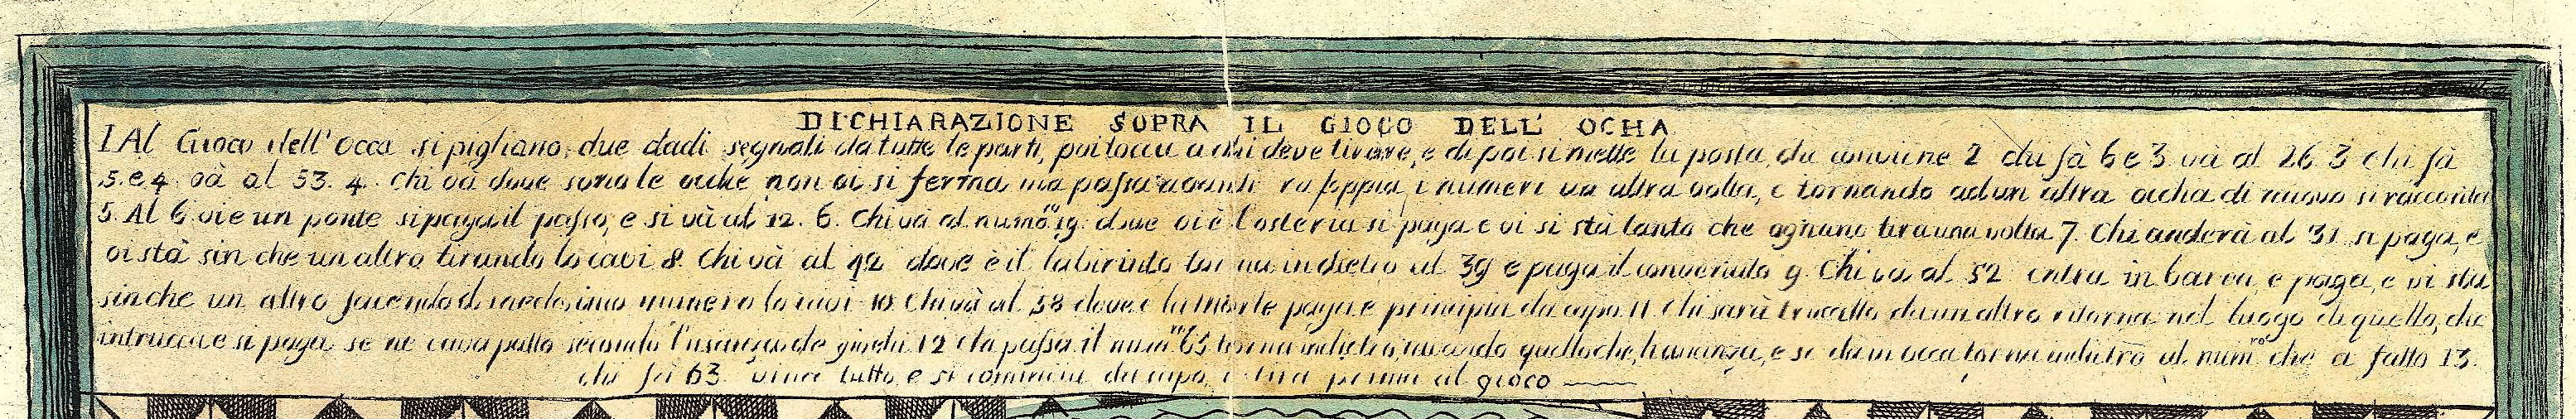 DICHIARAZIONE SOPRA IL GIOCO DELL' OCHA
I Al Giuoco dell' Occa si pigliano due dadi segnati da tutte le parti, poi tocca a chi deve tirare, e dipoi si mette la posta, da conviene 2 chi fà 6 e 3 và al 26 3 chi fà
5. e 4. và al 53. 4. Chi và dove sono le ocche non vi si ferma ma passa avanti i numeri un altra volta, e tornando ad un altra occha di nuovo si racconta
5. Al 6 vi e un ponte si paga il passo, e si và al 12. 6. Chi và al numº 19. dove vi è l'osteria si paga e vi si stà tanto che ognuno tira una volta 7. Chi anderà al 31 si paga, e
vi stà sin che un altro tirando lo cavi 8. Chi và al 42 dove è il labirinto torna indietro al 39 e paga il convenuto 9. Chi va al 52 entra in barca, e paga, e vi sta
sinche un altro facendo il medesimo numero lo cavi 10 Chi và al 58 dove è la Morte paga e principia da capo 11 Chi sarà truccatto da un altro ritorna nel luogo di quello, che
intrucca e si paga se ne cava patto secondo l'usanza de giochi 12 Chi passa il numº 63 torna indietro quello che avanza, e si da in occa torna indietro al numro che a fatto 13.
chi fà 63. vince tutto e si comincia da capo al gioco